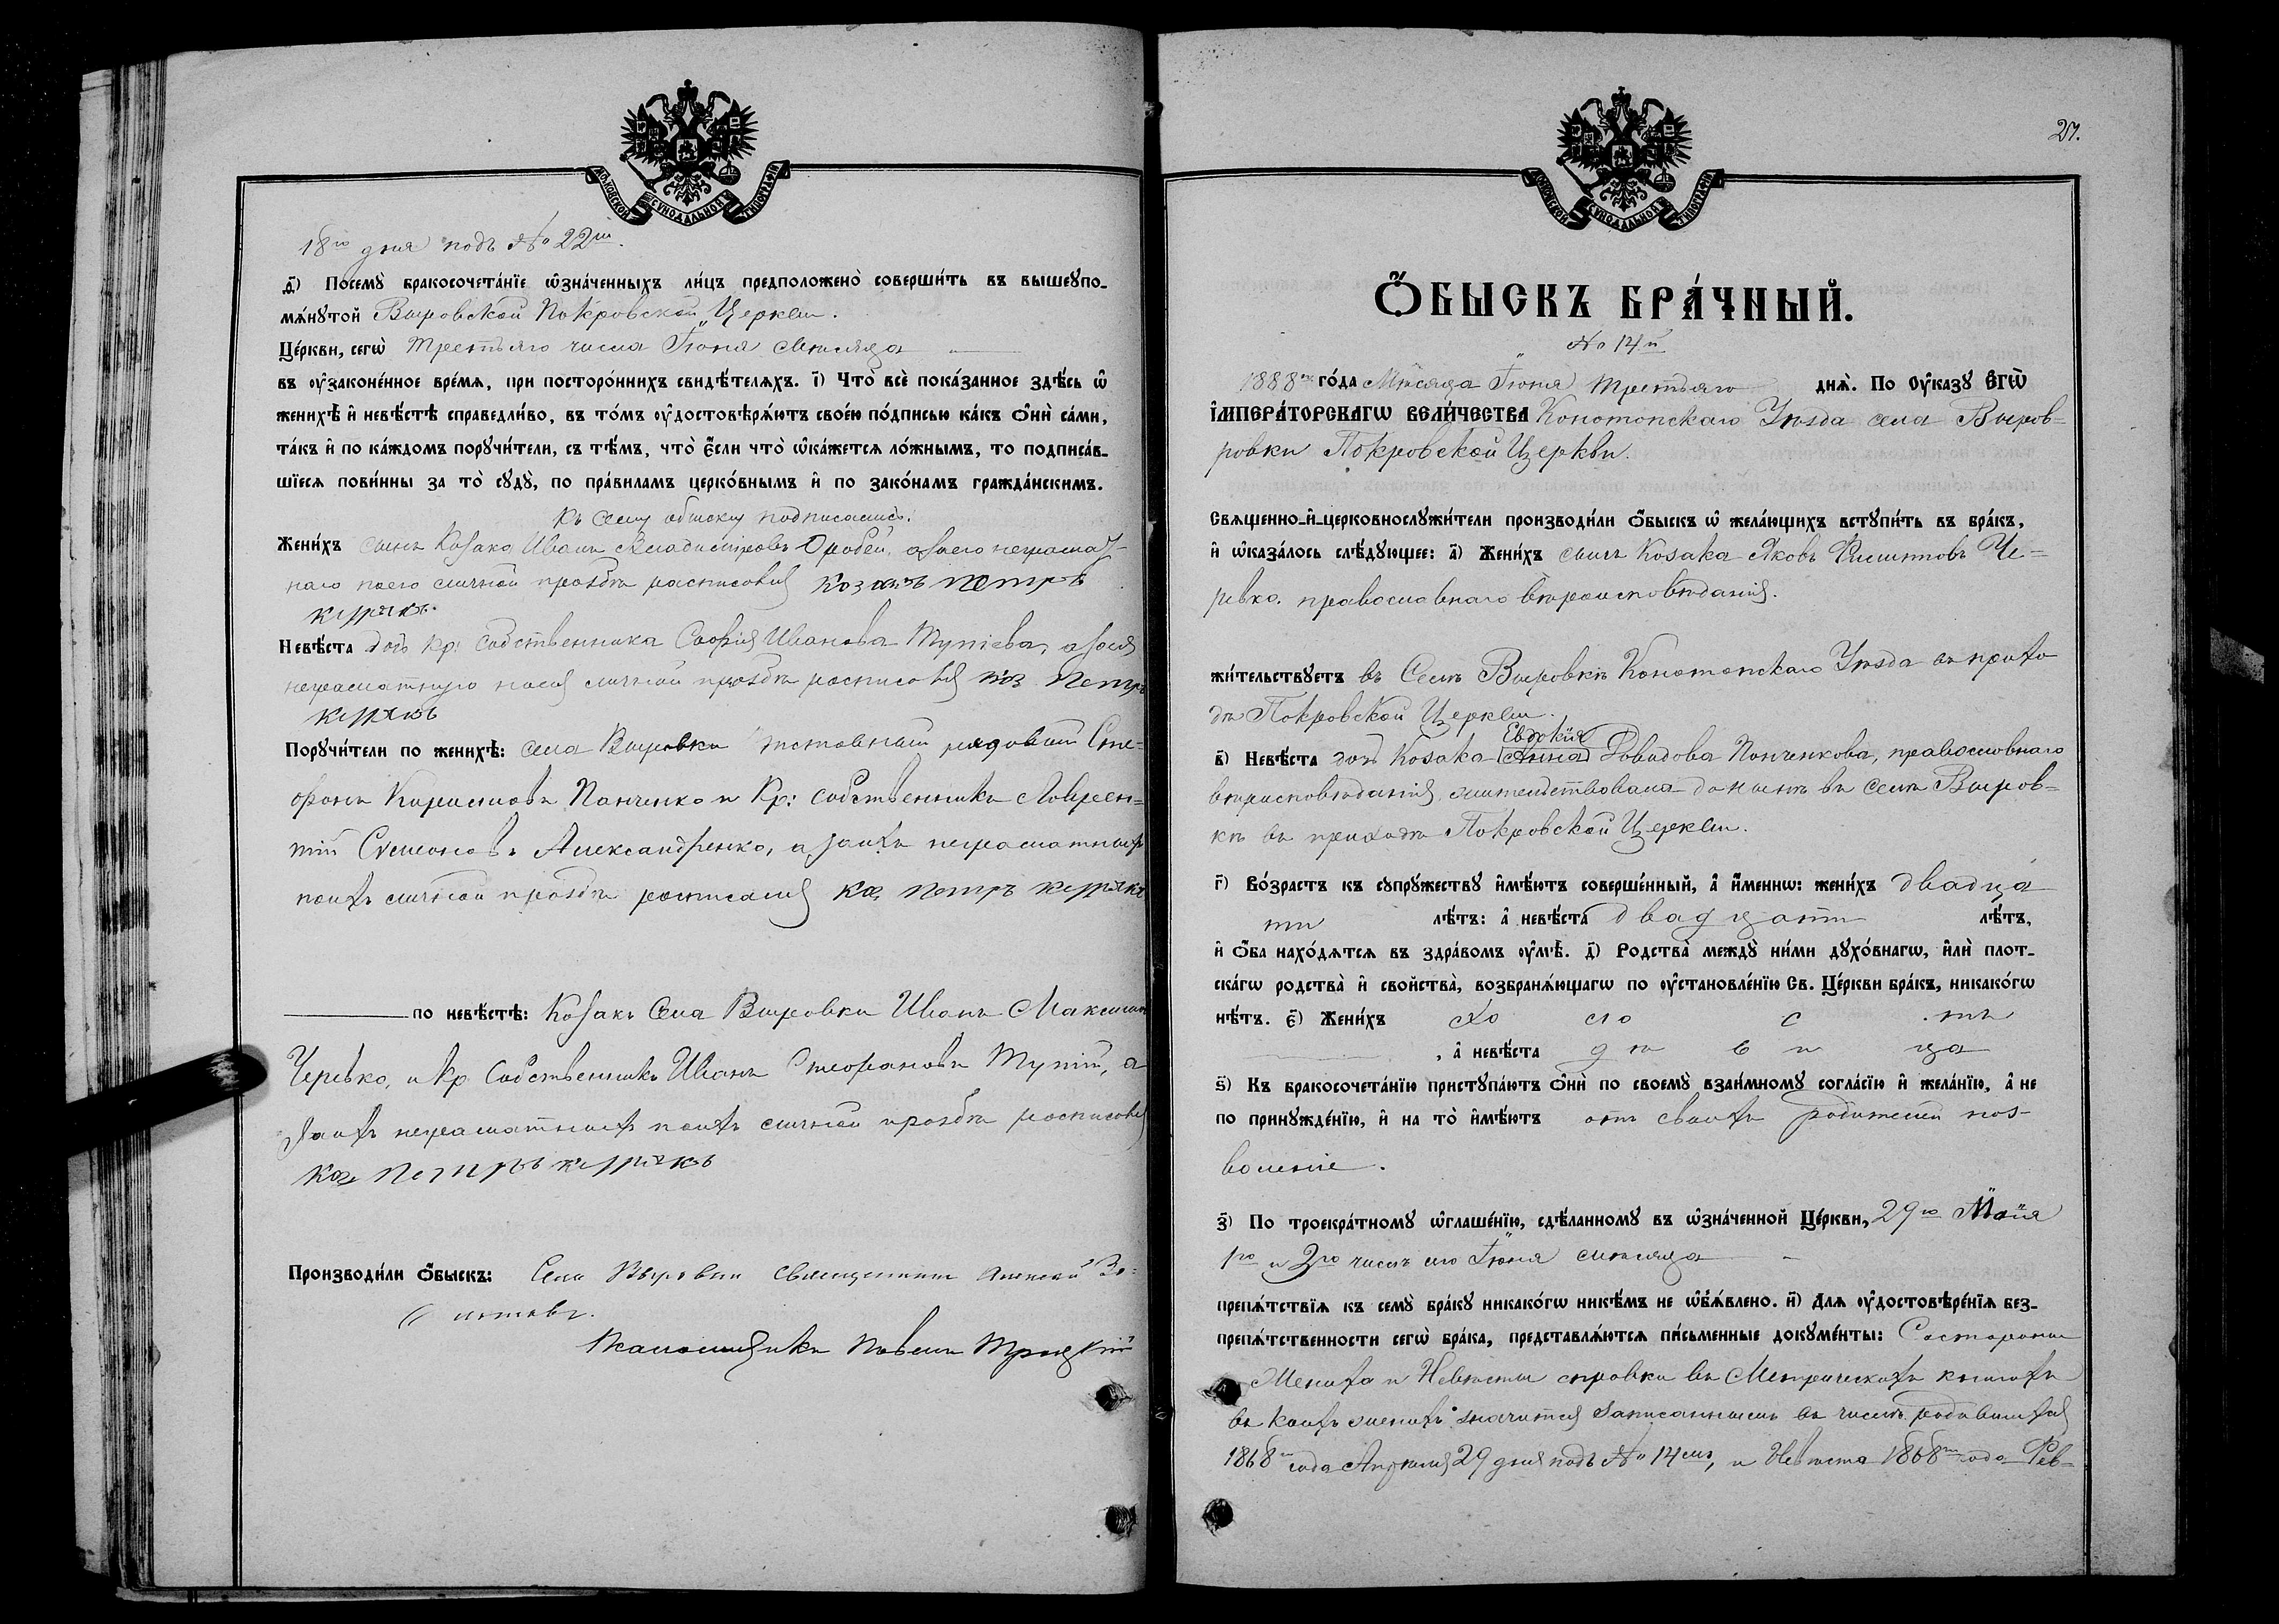 МОСКОВСКОЙ СѴНОДАЛЬНОЙ ТИПОГРАФІИ
18го дня подъ № 22м.
д҃) Посемꙋ̀ бракосочета́нїе ѡ҆зна́ченныхъ ли́цъ предположено̀ соверши́ть въ вышеꙋпо-
мѧ́нꙋтой Выровской Покровской Церкви.
Це́ркви, сегѡ̀ третьяго числа Іюня мѣсяца
въ ᲂу҆законе́нное вре́мѧ, при посторо́ннихъ свидѣ́телѧхъ. і҃) Что̀ всѐ пока́занное здѣ́сь ѡ҆
женихѣ̀ и҆ невѣ́стѣ справедли́во, въ то́мъ ᲂу҆достовѣрѧ́ютъ свое́ю по́дписью ка́къ ѻ҆нѝ са́ми,
та́къ и҆ по ка́ждомъ порꙋчи́тели, съ тѣ́мъ, что̀ є҆́сли что̀ ѡ҆ка́жетсѧ ло́жнымъ, то подписа́в-
шїесѧ пови́нны за то̀ сꙋдꙋ̀, по пра́виламъ церко́внымъ и҆ по зако́намъ гражда́нскимъ.
Къ сему обыску подписались:
Жени́хъ сынъ Козака Иванъ Владиміровъ Оробей, а за него неграмат-
наго по его личной прозьбѣ росписовся козакъ петръ
курякъ.
Невѣ́ста дочь Кр: собственника Софія Иванова Тупіева, а за нея
неграматную по ея личной прозьбѣ росписовся коз петръ
курякъ
Порꙋчи́тели по женихѣ̀: села Выровки отставный рядовый Сте-
фанъ Панченко и Кр: собственникъ Лаврен-
тій Симоновъ Александренко, а за ихъ неграматныхъ
по ихъ личной прозьбѣ росписался коз петръ курякъ
по невѣ́стѣ: Козакъ села Выровки Иванъ Максимовъ
Черевко, и Кр. собственникъ Иванъ Стефановъ Тупій, а
за ихъ неграматныхъ по ихъ личной прозьбѣ росписовся
коз петръ курякъ
Производи́ли ѻ҆́быскъ: Села Выровки священникъ Алексѣй
Псаломщикъ Павелъ Троцкій
27.
МОСКОВСКОЙ СѴНОДАЛЬНОЙ ТИПОГРАФІИ
Ѻ҆́БЫСКЪ БРА́ЧНЫЙ.
№ 14й
1888го го́да Мѣсяца Іюня третьяго днѧ̀. По Оу҆ка́зꙋ Є҆гѡ̀
І҆мпера́торскагѡ Вели́чества Конотопскаго Уѣзда села Выров-
ровки Покровской Церкви.
Свѧщенно-и҆-церковнослꙋжи́тели производи́ли ѻ҆́быскъ ѡ҆ жела́ющихъ встꙋпи́ть въ бра́къ,
и҆ ѡ҆каза́лось слѣ́дꙋющее: а҃) Жени́хъ сынъ Козака Яковъ Филиповъ Че-
ревко. православнаго вѣроисповѣданія.
жи́тельствꙋетъ въ Селѣ Выровкѣ Конотопскаго Уѣзда въ прихо
дѣ Покровской Церкви.
Евдокія
в҃) Невѣ́ста дочь Козака Анна Давидова Панченкова, православнаго
вѣроисповѣданія, жительствовала до нынѣ въ селѣ Выров-
кѣ въ приходѣ Покровской Церкви.
г҃) Во́зрастъ къ сꙋпрꙋ́жествꙋ и҆мѣ́ютъ соверше́нный, а҆ и҆́меннѡ: жени́хъ двадца
ти лѣ́тъ: а҆ невѣ́ста двадцати лѣ́тъ,
и҆ ѻ҆́ба нахо́дѧтсѧ въ здра́вомъ ᲂу҆мѣ̀. д҃) Родства̀ междꙋ̀ ни́ми дꙋхо́внагѡ, и҆лѝ плот-
ска́гѡ родства̀ и҆ свойства̀, возбранѧ́ющагѡ по ᲂу҆становле́нїю Св. Це́ркви бра́къ, никако́гѡ
нѣ́тъ. є҃) Жени́хъ холостъ
, а҆ невѣ́ста дѣвица
ѕ҃) Къ бракосочета́нїю пристꙋпа́ютъ ѻ҆нѝ по своемꙋ̀ взаи́мномꙋ согла́сїю и҆ жела́нїю, а҆ не
по принꙋжде́нїю, и҆ на то̀ и҆мѣ́ютъ отъ своихъ родителей поз-
воленіе.
з҃) По троекра́тномꙋ ѡ҆глаше́нїю, сдѣ́ланномꙋ въ ѡ҆зна́ченной Це́ркви, 29го Мая
1го и 2го числъ сего Іюня мѣсяца
препѧ́тствїѧ къ семꙋ̀ бра́кꙋ никако́гѡ никѣ́мъ не ѡ҆б̾ѧ́влено. и҃) Длѧ ᲂу҆достовѣре́нїѧ без-
препѧ́тственности сегѡ̀ бра́ка, представлѧ́ютсѧ пи́сьменные докꙋме́нты: Со стороны
Жениха и Невѣсты справки въ Метрическихъ книгахъ
въ коихъ женихъ значится записаннымъ въ числѣ родившихся
1868го года Апрѣля 29 дня подъ № 14мъ, и Невѣста 1868го года Фев-